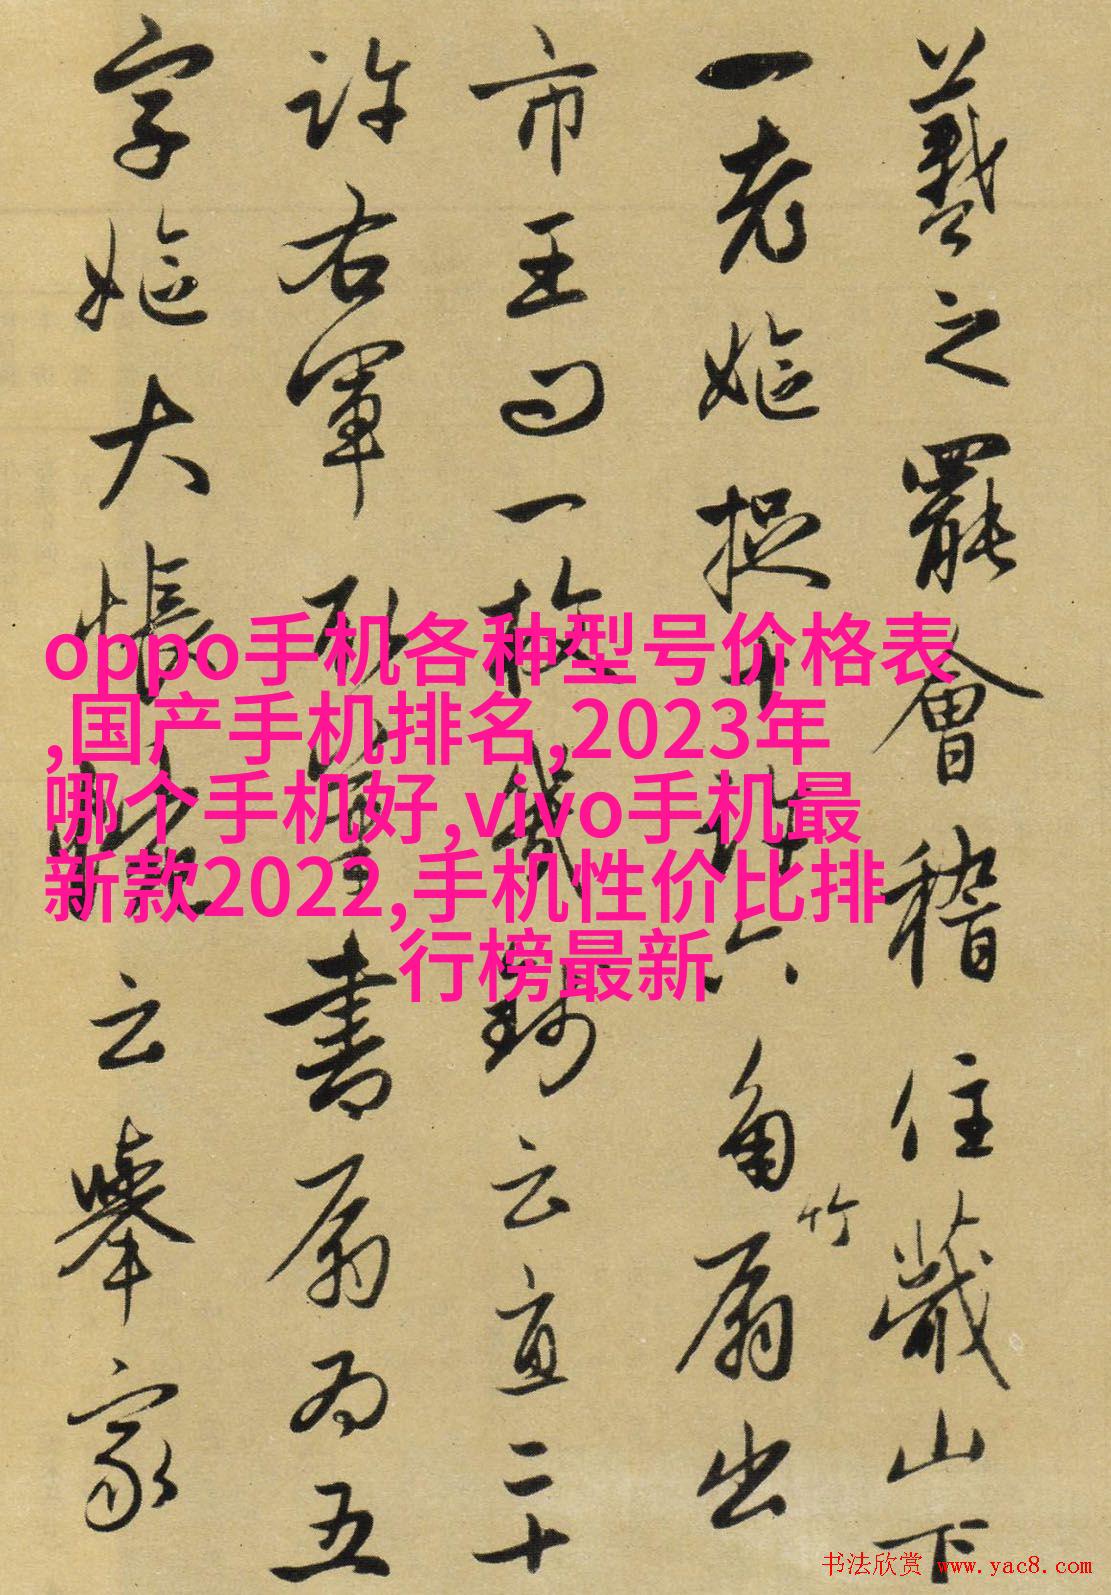 羲之罷會稽住蕺山下
一老嫗捉十許六角竹扇出
市王問一枚幾錢云直二十
許右軍取筆書扇為五
字嫗大悵惋云舉家
oppo手机各种型号价格表
,国产手机排名,2023年
哪个手机好,vivo手机最
新款2022,手机性价比排
行榜最新
书法欣赏 www.yac8.com